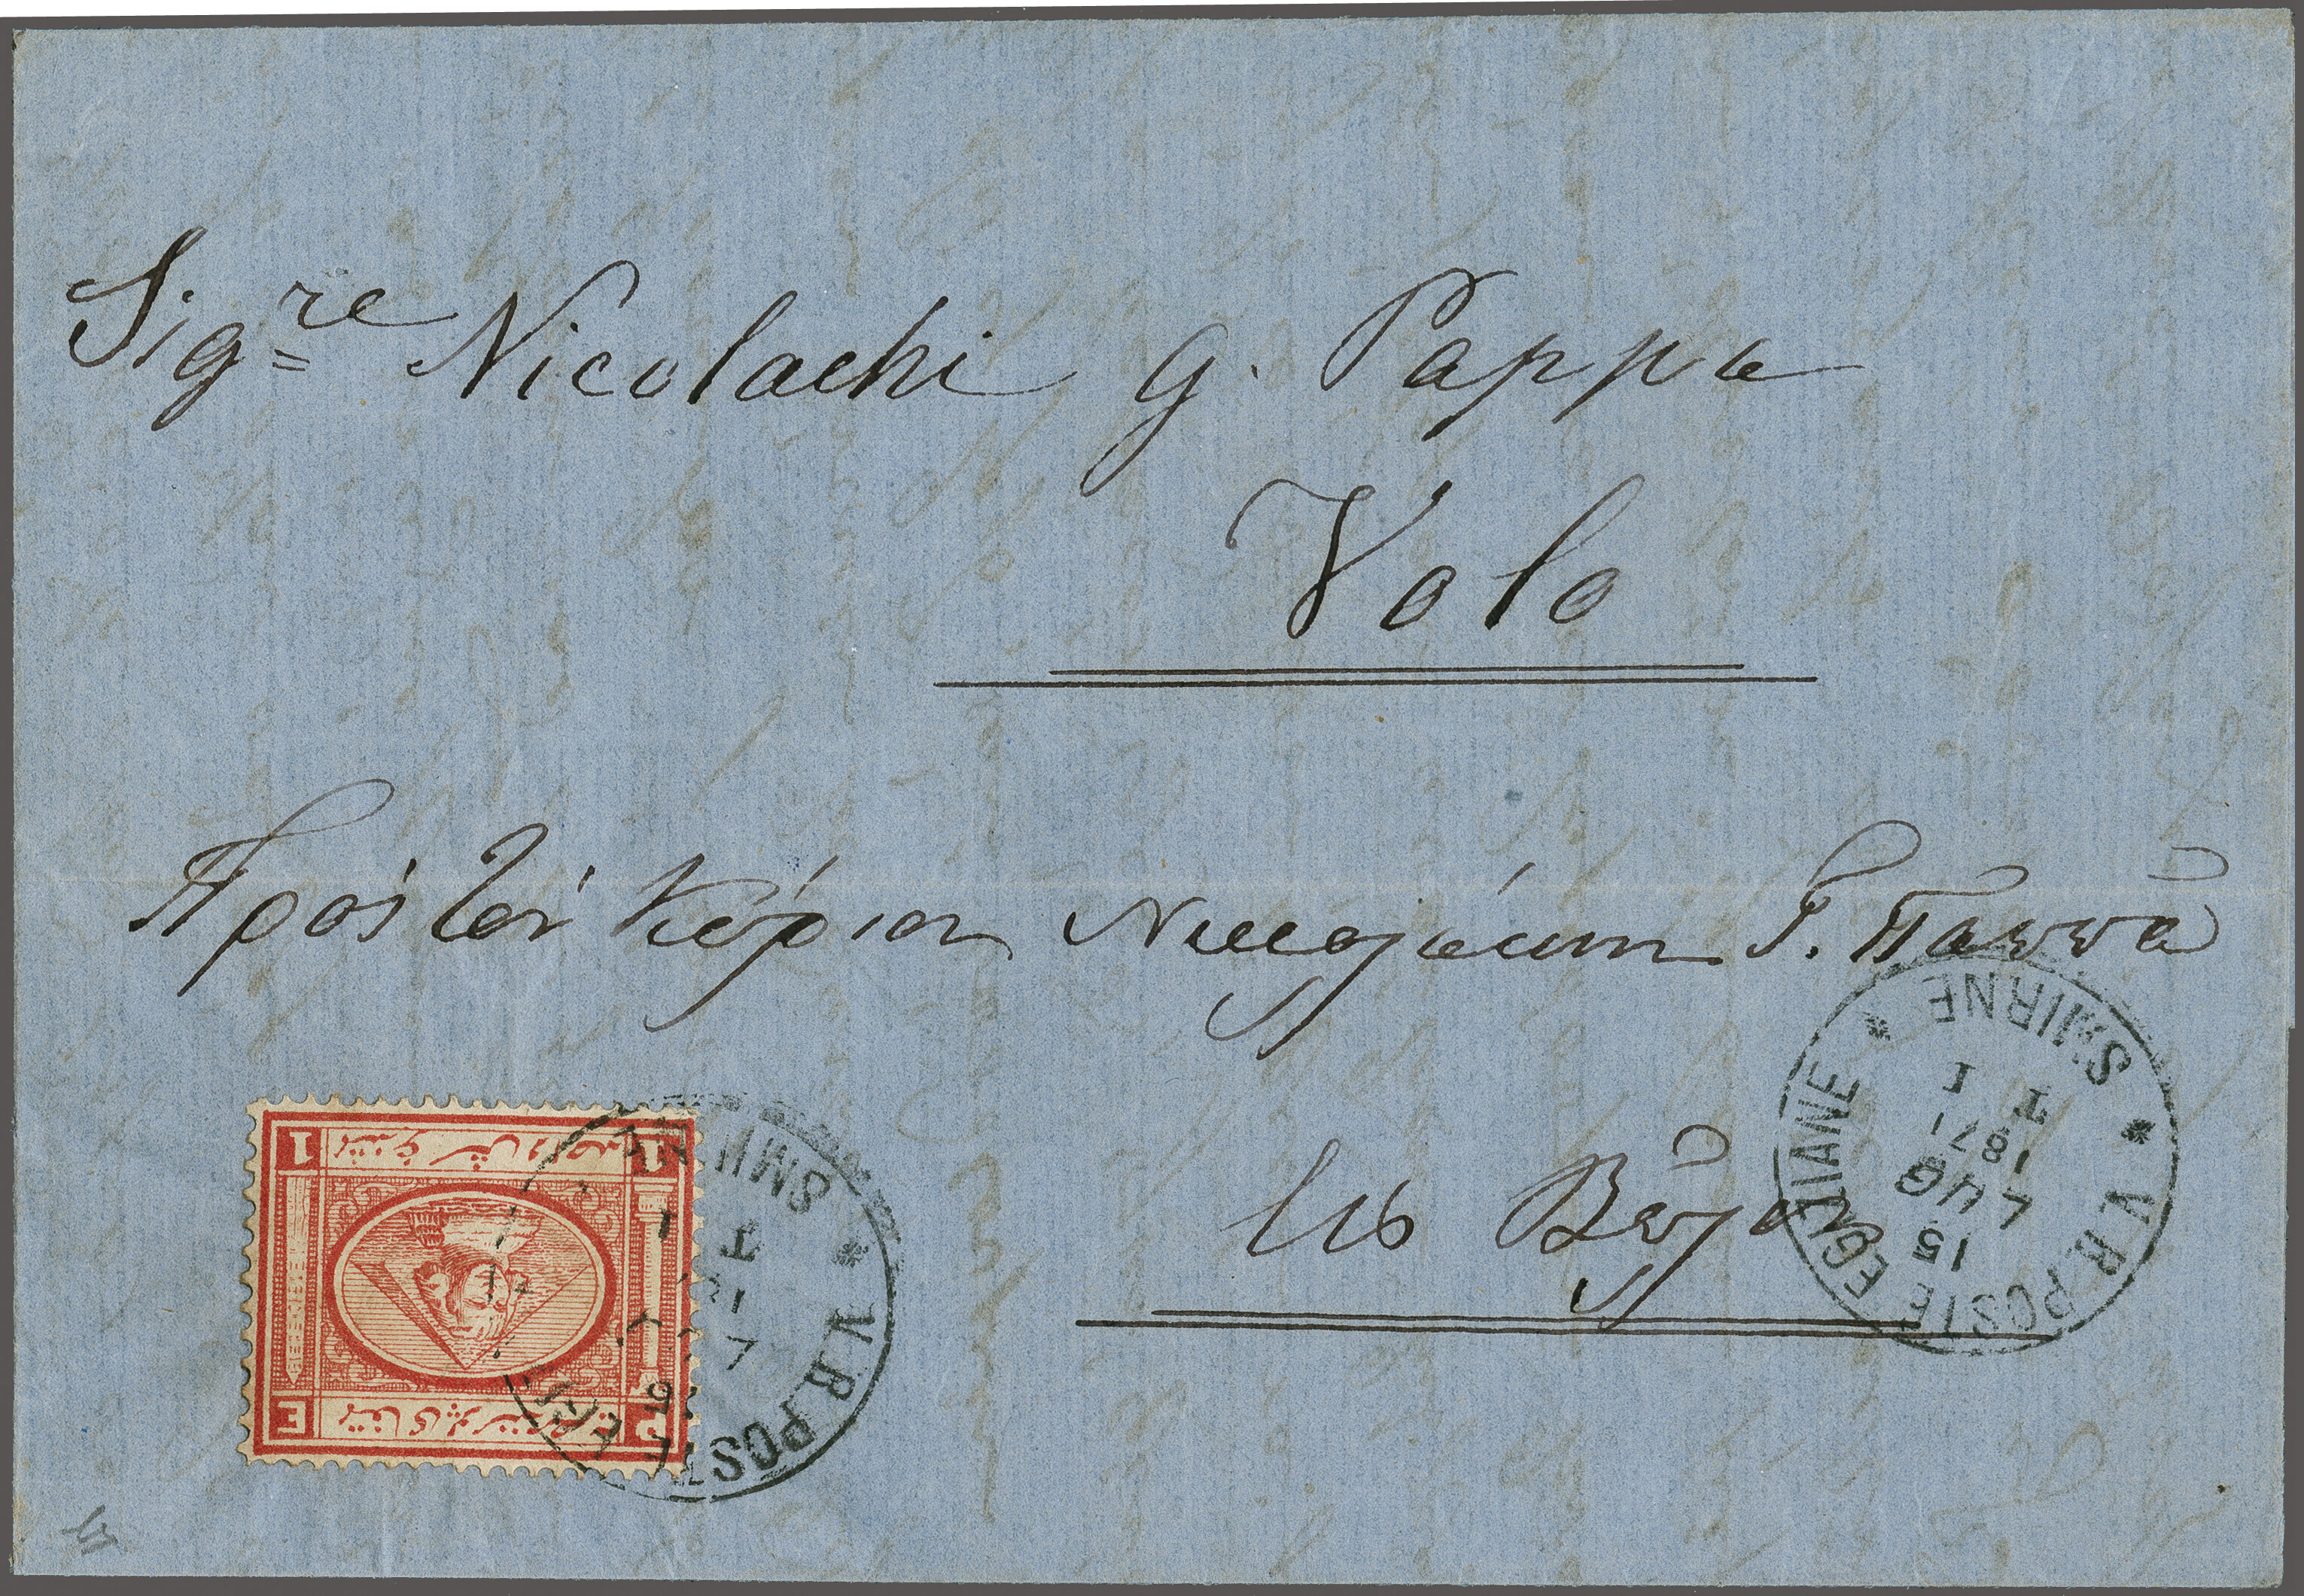 Sigre Nicolachi G. Pappa
Volo
Πρὸς τὸν Κύριον Νικολάκην Γ. Παππᾶ
εἰς Βῶλον
V. R. POSTE EGIZIANE
SMIRNE
15
LUG
1871
T I
V. R. POSTE EGI
SMI
T
1 1
P E